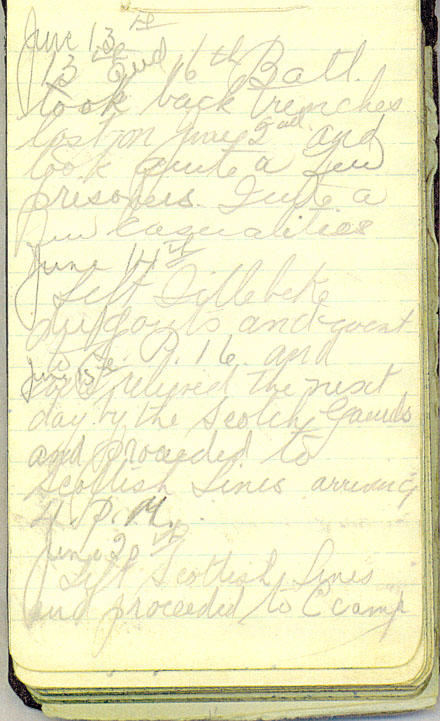 June 13th
13th and 16th Batl.
took back trenches
lost on June 2nd and
took quite a few
prisoners. Quite a
few Casualities
June 14th
Left Zillebeke
dugouts and went
P. 16 and
June 15th relieved the next
day by the Scotch Gaurds
and proceeded to
Scottish Lines arriving
4 P.M.
June 20th
Left Scottish Lines
and proceeded to C camp